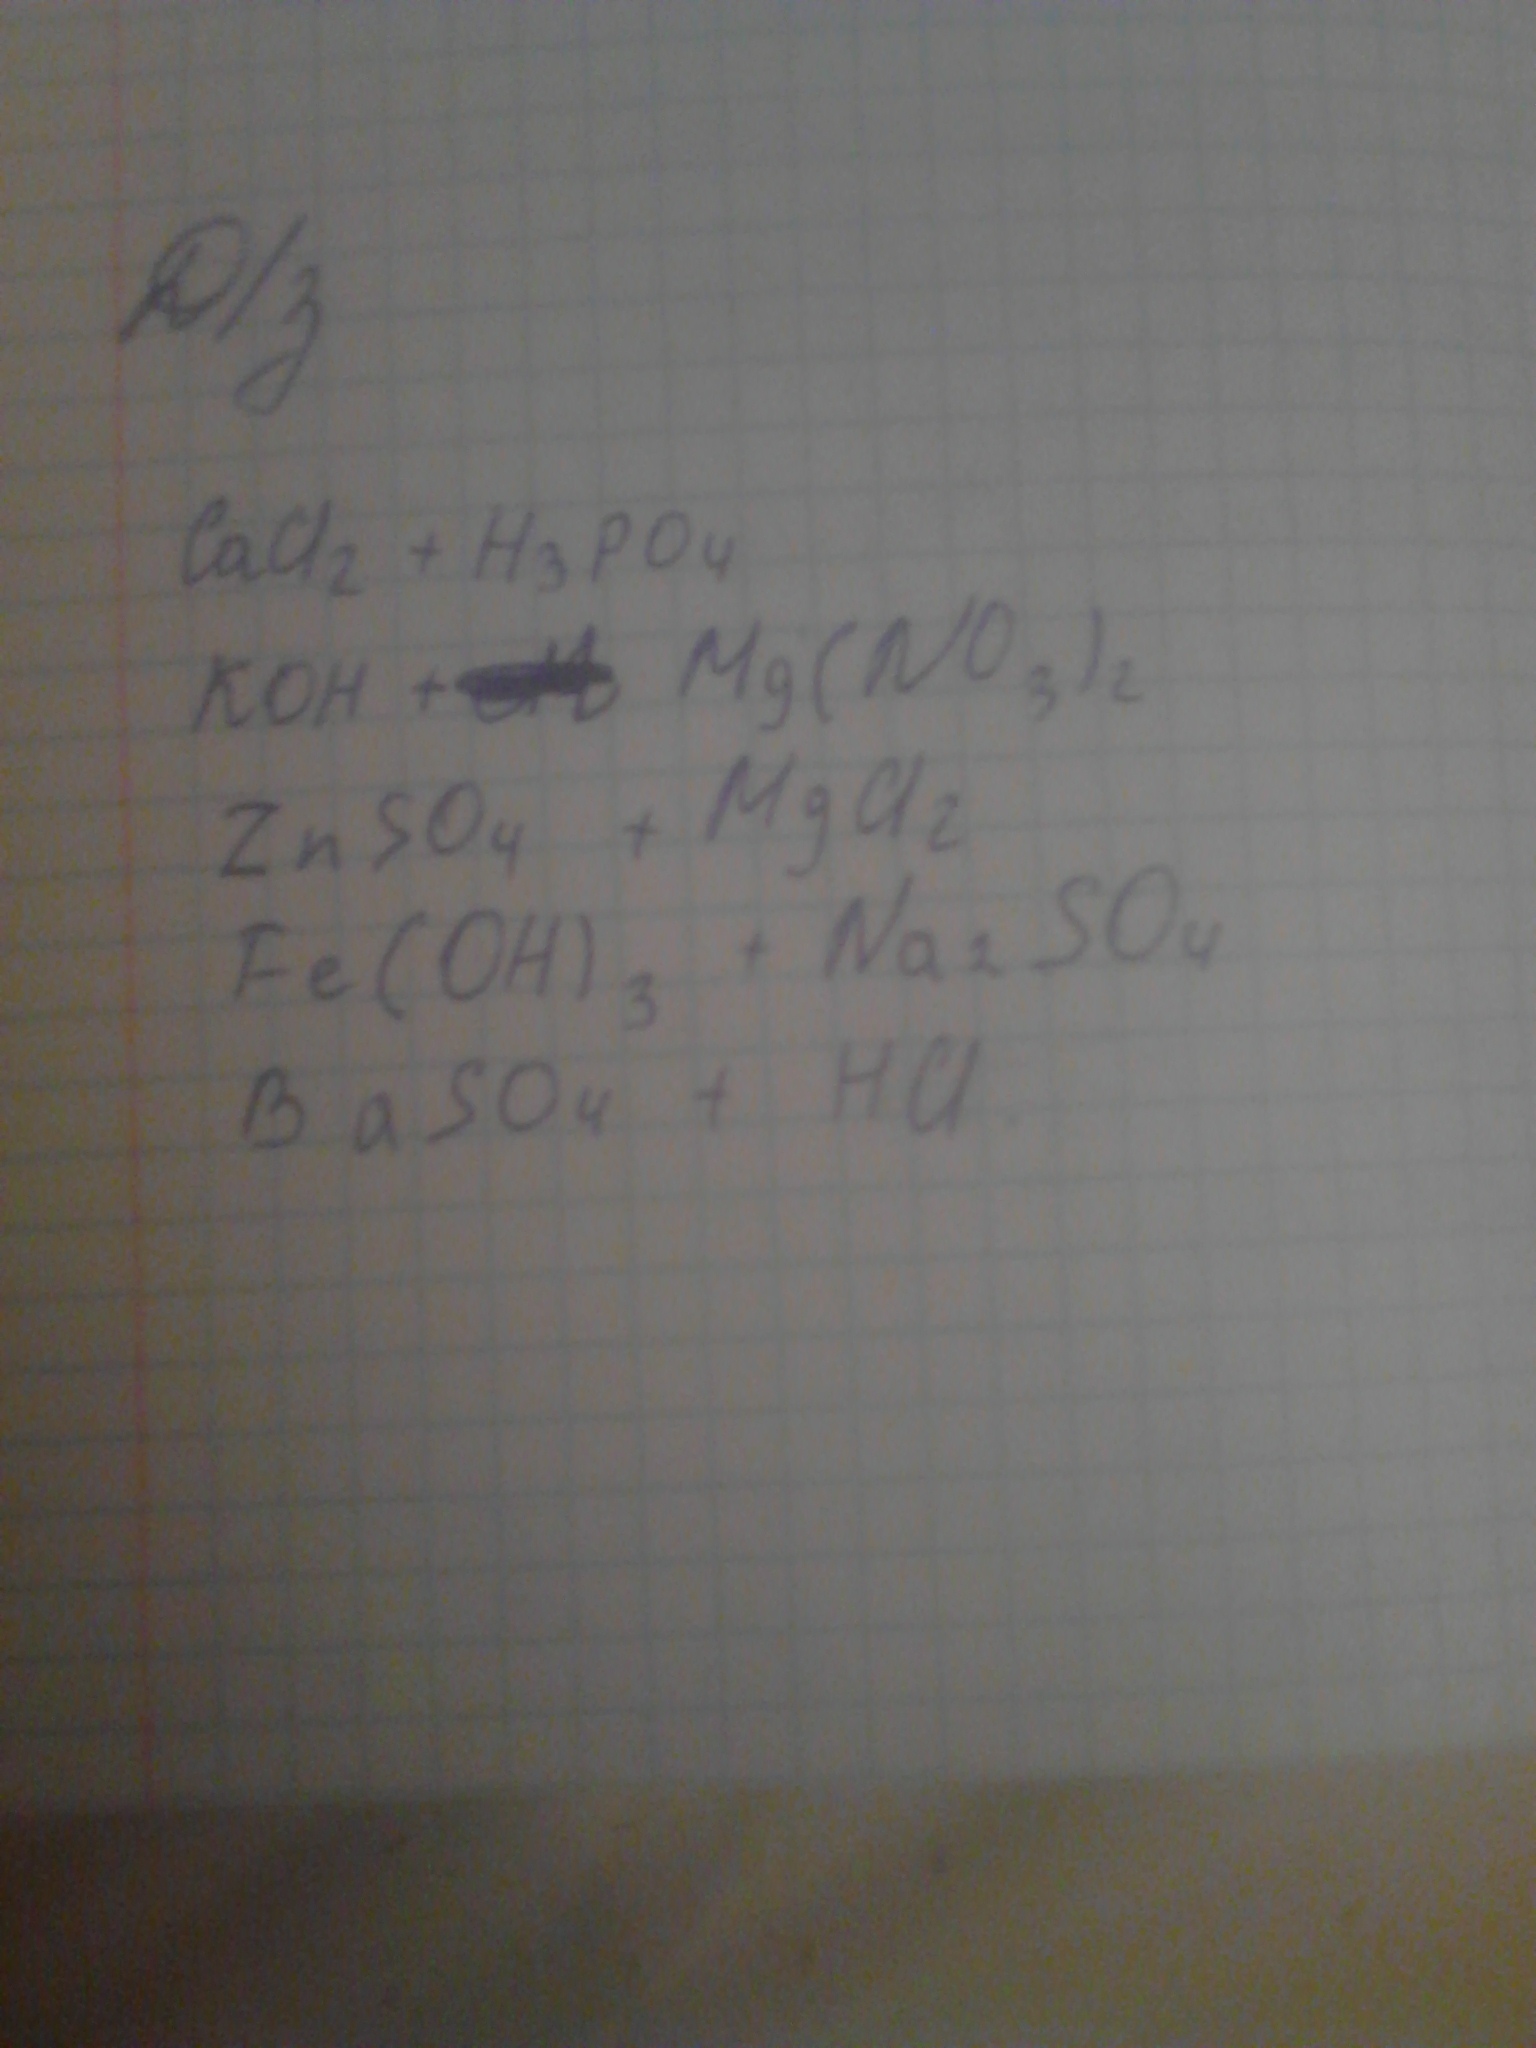 Д/з
CaCl₂ + H₃PO₄
KOH + Mg(NO₃)₂
ZnSO₄ + MgCl₂
Fe(OH)₃ + Na₂SO₄
BaSO₄ + HCl